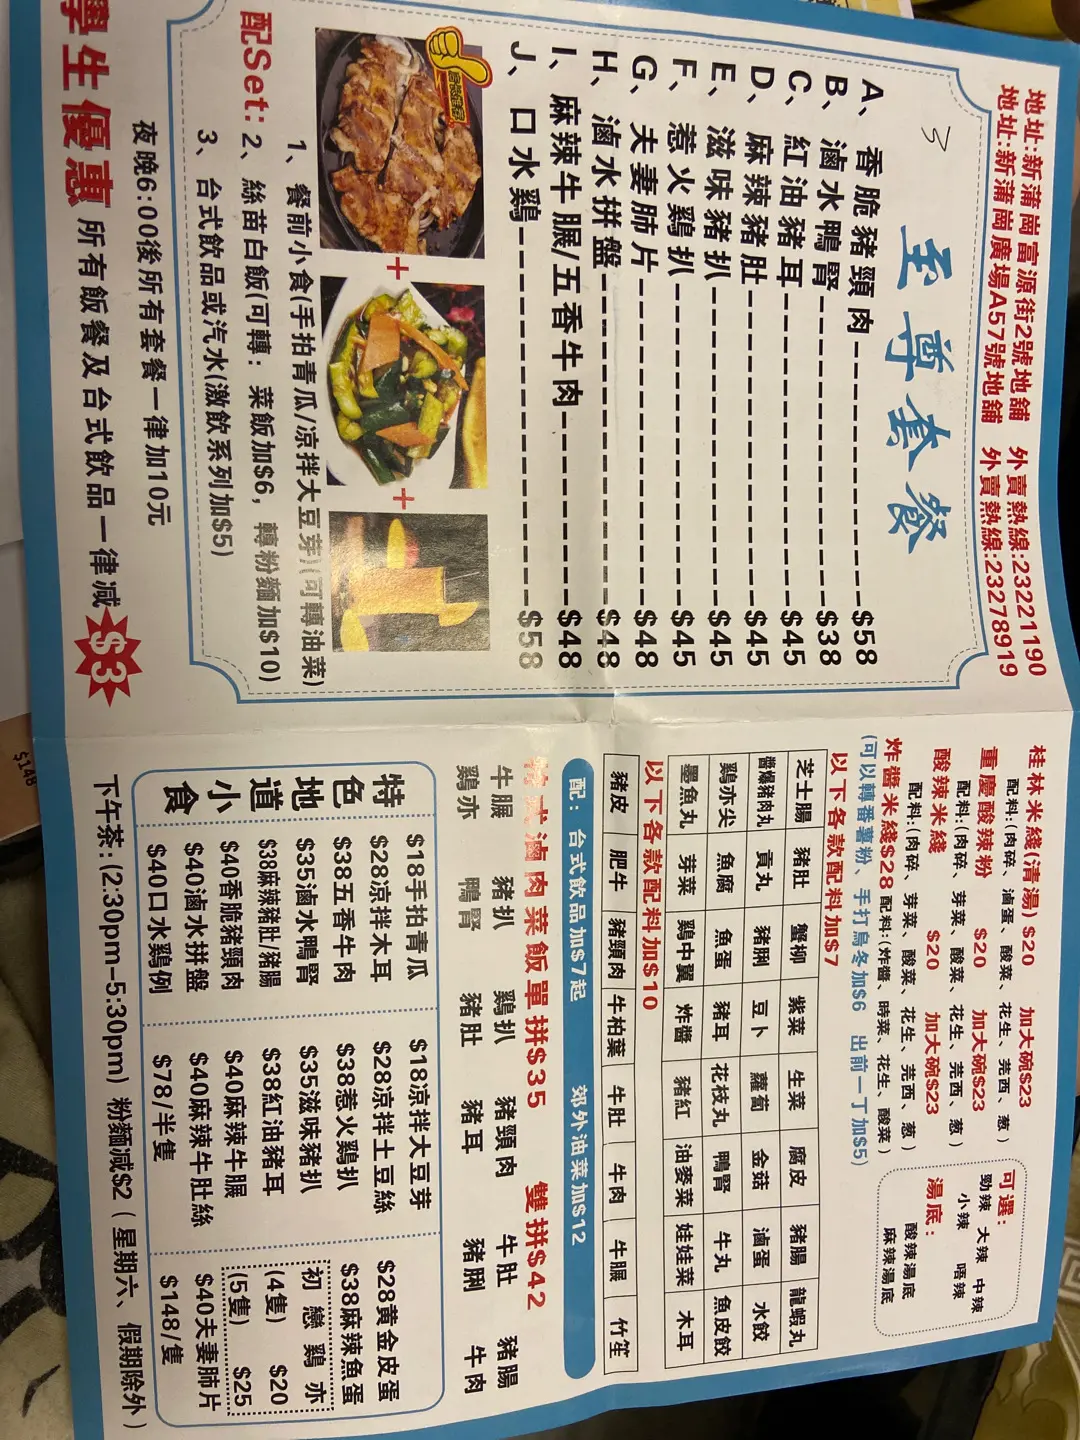 地址:新蒲崗富源街2號地舖 外賣熱線:23221190
地址:新蒲崗廣場A57號地舖 外賣熱線:23278919
至尊套餐
3
A、香脆豬頸肉---$58
B、滷水鴨腎---$38
C、紅油豬耳---$45
D、麻辣豬肚---$45
E、滋味豬扒---$45
F、惹火雞扒---$45
G、夫妻肺片---$48
H、滷水拼盤---$48
I、麻辣牛𦟌/五香牛肉---$48
J、口水雞---$58
+
+
配Set:
1、餐前小食(手拍青瓜/凉拌大豆芽)(可轉油菜)
2、絲苗白飯(可轉：菜飯加$6，轉粉麵加$10)
3、台式飲品或汽水(激飲系列加$5)
夜晚6:00後所有套餐一律加10元
學生優惠 所有飯餐及台式飲品一律减$3
桂林米綫(清湯) $20 加大碗$23
配料:(肉碎、滷蛋、酸菜、花生、芫西、葱)
重慶酸辣粉 $20 加大碗$23
配料:(肉碎、芽菜、酸菜、花生、芫西、葱)
酸辣米綫 $20 加大碗$23
配料:(肉碎、芽菜、酸菜、花生、芫西、葱)
炸醬米綫$28 配料:(炸醬、時菜、花生、酸菜)
(可以轉番薯粉、手打烏冬加$6 出前一丁加$5)
可選:
勁辣 大辣 中辣
小辣 唔辣
湯底:
酸辣湯底
麻辣湯底
以下各款配料加$7
芝士腸 豬肚 蟹柳 紫菜 生菜 腐皮 豬腸 龍蝦丸
醬爆豬肉丸 貢丸 豬脷 豆卜 蘿蔔 金菇 滷蛋 水餃
雞亦尖 魚腐 魚蛋 豬耳 花枝丸 鴨腎 牛丸 魚皮餃
墨魚丸 芽菜 雞中翼 炸醬 豬紅 油麥菜 娃娃菜 木耳
以下各款配料加$10
豬皮 肥牛 豬頸肉 牛柏葉 牛肚 牛肉 牛𦟌 竹笙
配：台式飲品加$7起 郊外油菜加$12
式滷肉菜飯單拼$35 雙拼$42
牛𦟌 豬扒 雞扒 豬頸肉 牛肚 豬腸
雞亦 鴨腎 豬肚 豬耳 豬脷 牛肉
特色地道小食
$18手拍青瓜 $18凉拌大豆芽
$28凉拌木耳 $28凉拌土豆絲 $28黄金皮蛋
$38五香牛肉 $38惹火雞扒 $38麻辣魚蛋
$35滷水鴨腎 $35滋味豬扒 初戀雞亦
$38麻辣豬肚/豬腸 $38紅油豬耳 (4隻) $20
$40香脆豬頸肉 $40麻辣牛𦟌 (5隻) $25
$40滷水拼盤 $40麻辣牛肚絲 $40夫妻肺片
$40口水雞例 $78/半隻 $148/隻
下午茶:(2:30pm-5:30pm) 粉麵减$2 (星期六、假期除外)
$148